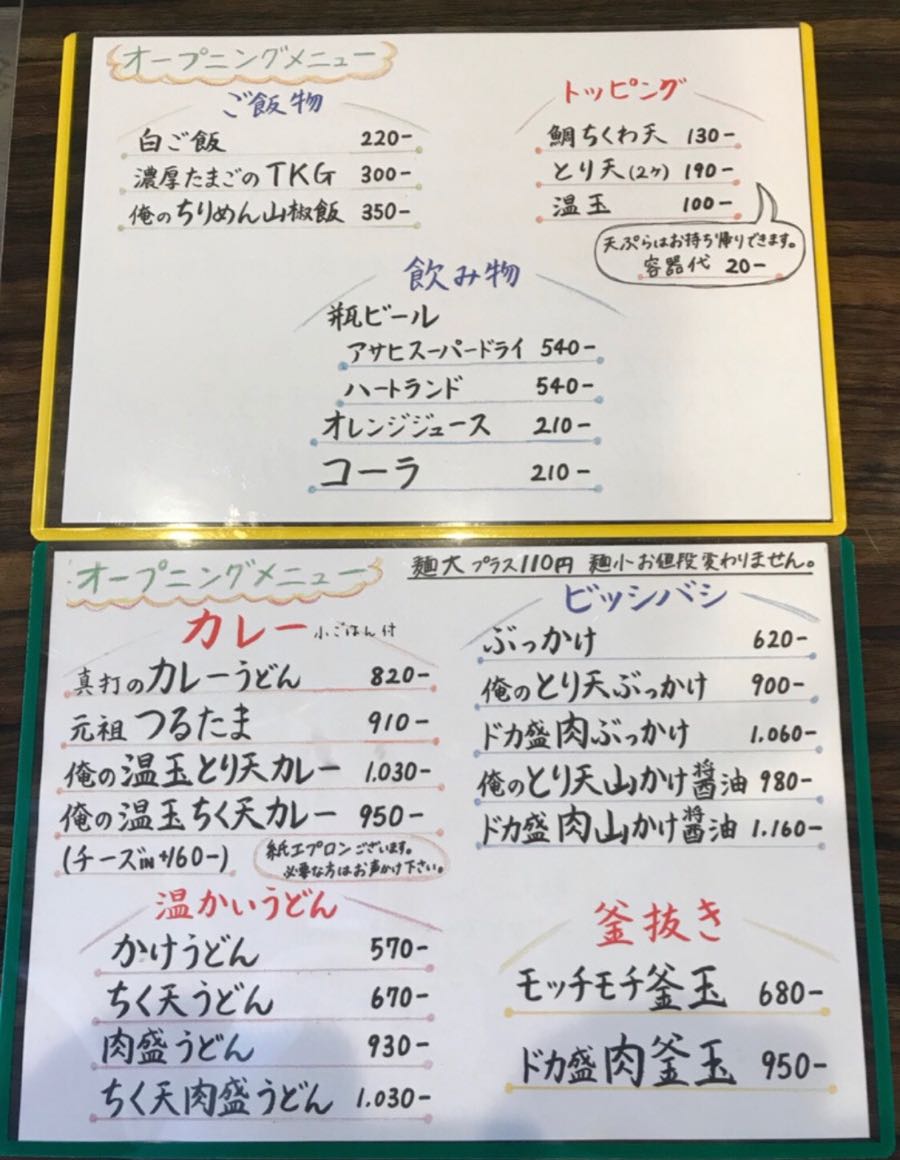 オープニングメニュー
ご飯物
白ご飯 220-
濃厚たまごのTKG 300-
俺のちりめん山椒飯 350-
トッピング
鯛ちくわ天 130-
とり天(2ヶ) 190-
温玉 100-
天ぷらはお持ち帰りできます。
容器代 20-
飲み物
瓶ビール
アサヒスーパードライ 540-
ハートランド 540-
オレンジジュース 210-
コーラ 210-
オープニングメニュー
麺大プラス110円 麺小お値段変わりません。
カレー 小ごはん付
真打のカレーうどん 820-
元祖つるたま 910-
俺の温玉とり天カレー 1.030-
俺の温玉ちく天カレー 950-
(チーズIN +160-)
紙エプロンございます。
必要な方はお声かけ下さい。
温かいうどん
かけうどん 570-
ちく天うどん 670-
肉盛うどん 930-
ちく天肉盛うどん 1.030-
ビッシバシ
ぶっかけ 620-
俺のとり天ぶっかけ 900-
ドカ盛肉ぶっかけ 1.060-
俺のとり天山かけ醤油 980-
ドカ盛肉山かけ醤油 1.160-
釜抜き
モッチモチ釜玉 680-
ドカ盛肉釜玉 950-